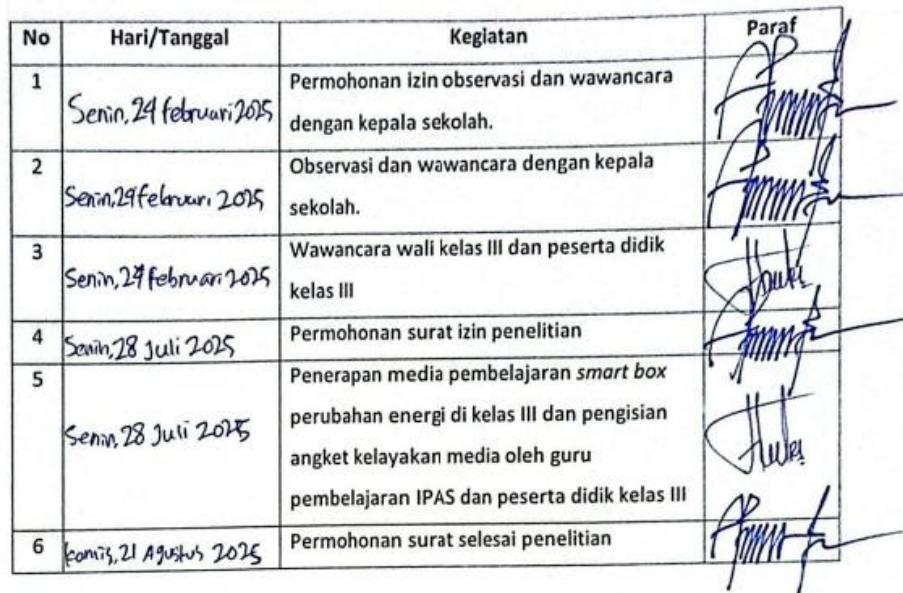 No Hari/Tanggal Kegiatan Paraf
1 Senin, 24 februari 2025 Permohonan izin observasi dan wawancara
dengan kepala sekolah.
2 Senin, 24 februari 2025 Observasi dan wawancara dengan kepala
sekolah.
3 Senin, 24 februari 2025 Wawancara wali kelas III dan peserta didik
kelas III
4 Senin, 28 Juli 2025 Permohonan surat izin penelitian
5 Senin, 28 Juli 2025 Penerapan media pembelajaran smart box
perubahan energi di kelas III dan pengisian
angket kelayakan media oleh guru
pembelajaran IPAS dan peserta didik kelas III
6 kamis, 21 Agustus 2025 Permohonan surat selesai penelitian